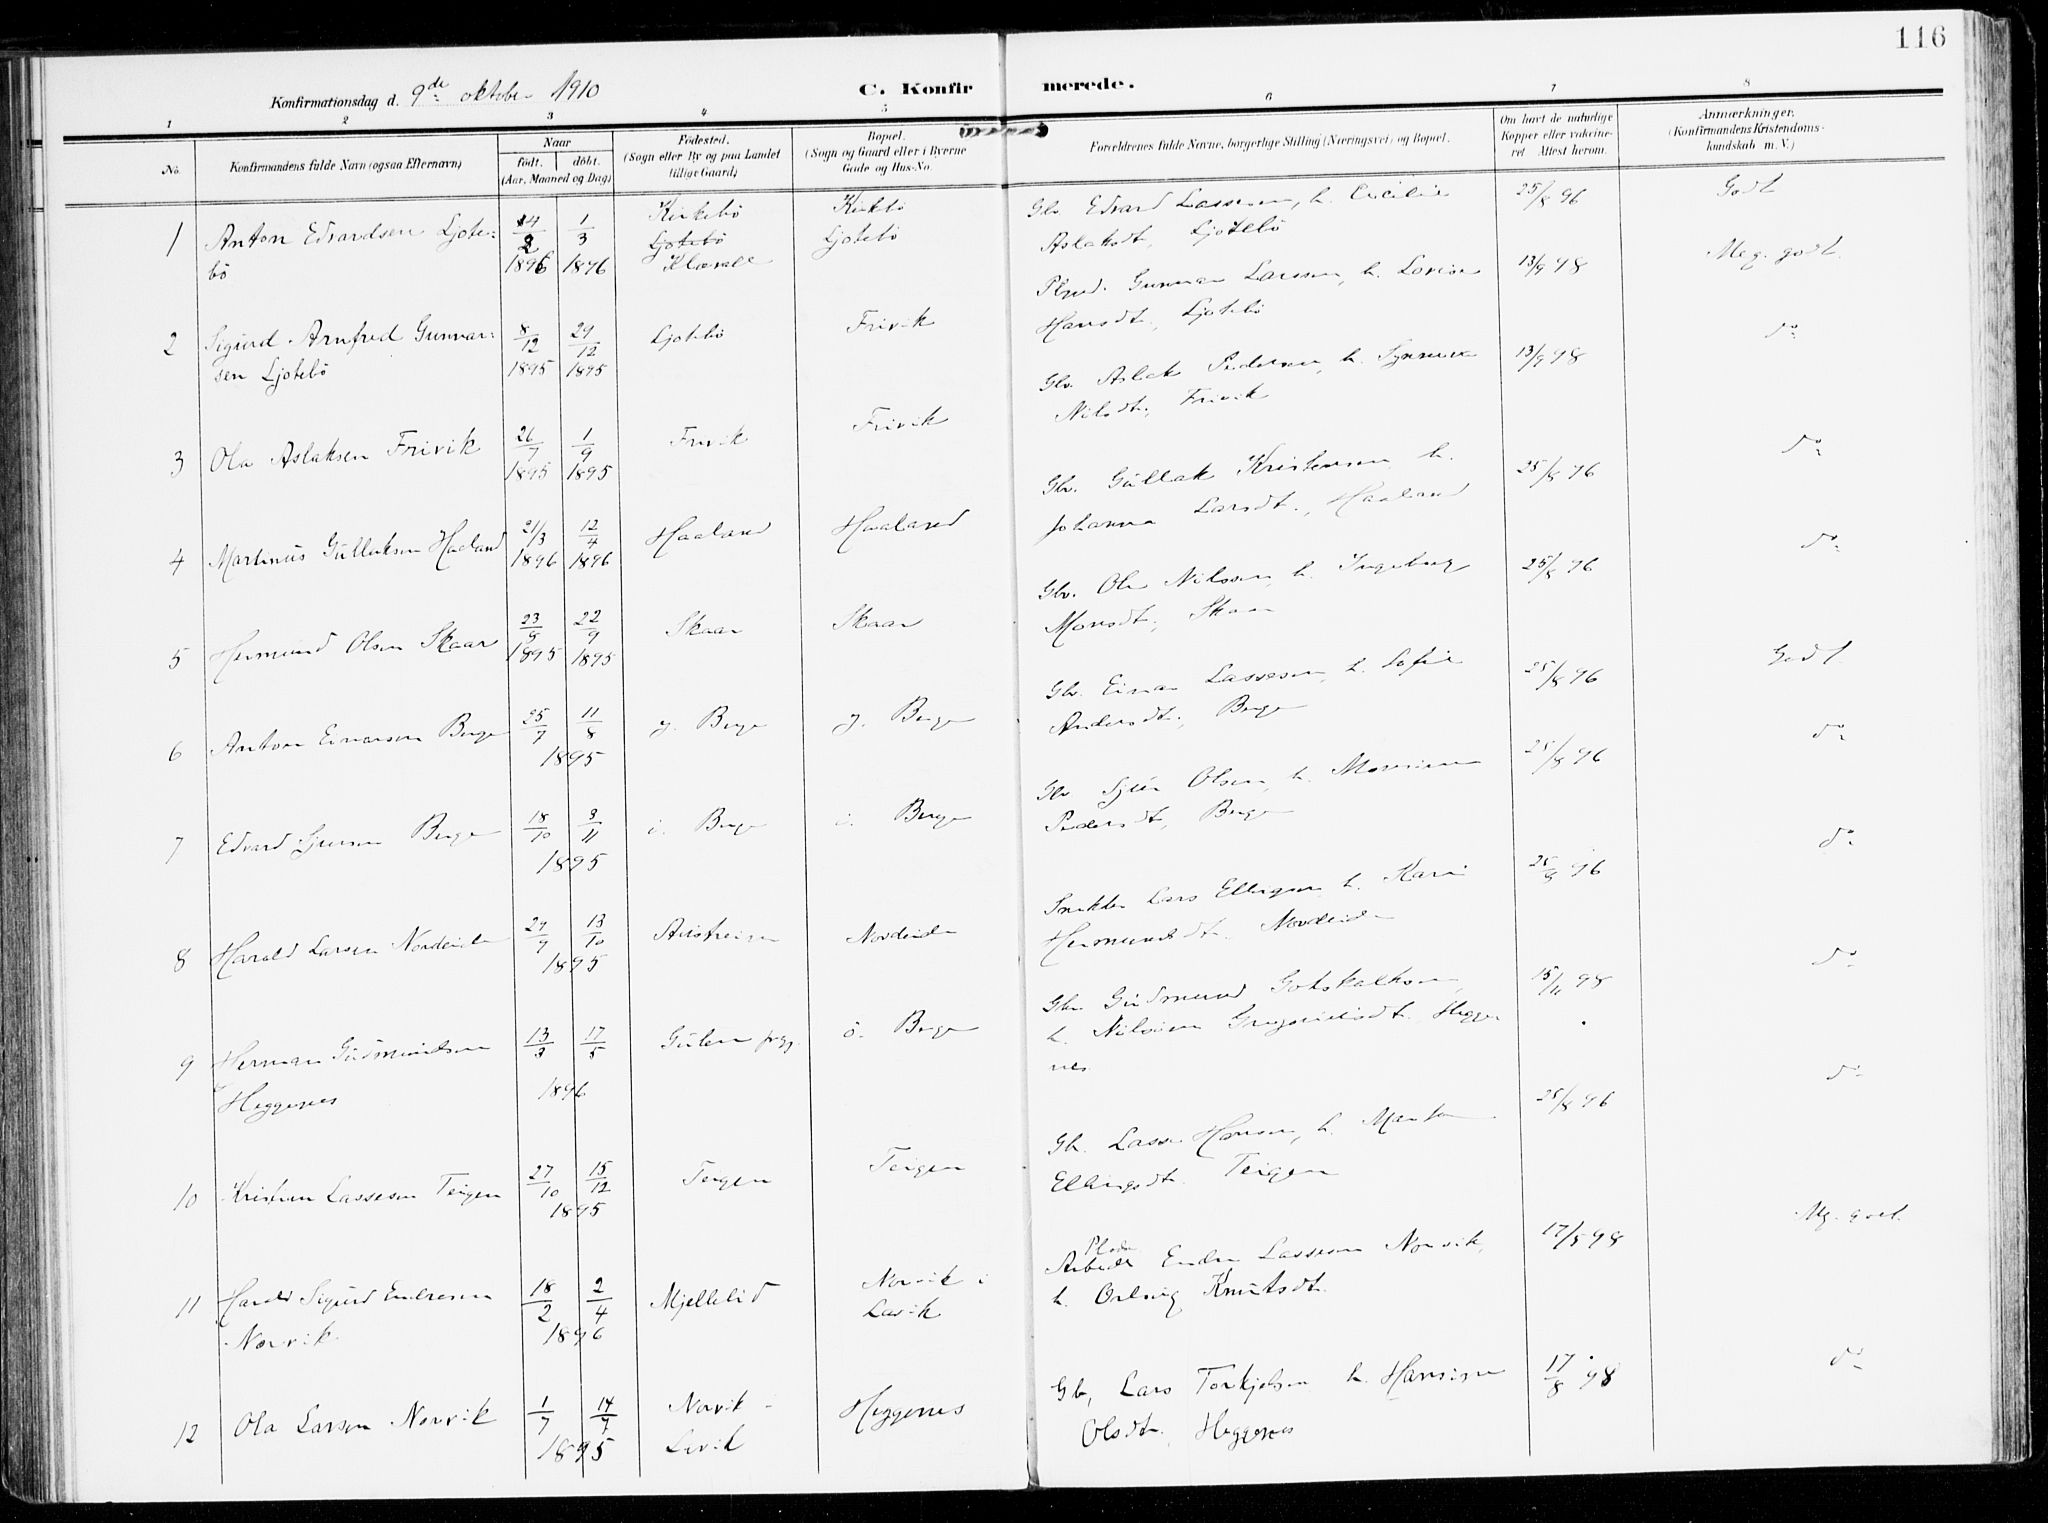 116
Konfirmationsdag d. 9de oktober 1910
C. Konfirmerede.
1 2 3 4 5 6 7 8
No.
Konfirmandens fulde Navn (ogsaa Efternavn)
Naar
født. døbt.
(Aar, Maaned og Dag)
Fødested.
(Sogn eller By og paa Landet
tillige Gaard)
Bopæl.
(Sogn og Gaard eller i Byerne
Gade og Hus-No.
Forældrenes fulde Navne, borgerlige Stilling (Næringsvei) og Bopæl.
Om havt de naturlige
Kopper eller vakcine-
ret Attest herom.
Anmærkninger.
(Konfirmandens Kristendoms-
kundskab m. V.)
1 Anton Edvardsen Ljote:
bö
14/2 1896 1/3 1896
Kirkebö
Ljotebö
Kirkebö
Ljotebö
Gbr. Edvard Lassesen, h. Cecilie
Aslaksdt., Ljotebö
25/8 96
Godt
2 Sigurd Arnfred Gunnar:
sen Ljotebö
8/12 1895 29/12 1895
Ljotebö
Frivik
Gunnar Larssen, h. Lovise
Hansdt., Ljotebö
13/9 98
Meg. godt.
3 Ola Aslaksen Frivik
26/7 1895 1/9 1895
Frivik
Frivik
Gbr. Aslak Pedersen, h. Synneve
Nilsdt., Frivik
13/9 98
do
4 Martinus Gullaksen Haaland
21/3 1896 12/4 1896
Haaland
Haaland
Gbr. Gullak Kristensen, h.
Johanna Larsdt., Haaland
25/8 96
do
5 Hermund Olsen Skaar
23/8 1895 22/9 1895
Skaar
Skaar
Gbr. Ole Nilssen, h. Ingeborg
Monsdt., Skaar
25/8 96
do
6 Anton Einarsen Berge
25/7 11/8
1895
y. Berge
y. Berge
Gbr. Einar Lassesen, h. Sofie
Andersdt., Berge
25/8 96
Godt.
7 Edvard Sjursen Berge
18/10 3/11
1895
i. Berge
i. Berge
Gbr. Sjur Olsen, h.
Pedersdt., Berge
25/8 96
do
8 Harald Larsen Nordeide
29/9 13/10
1895
Austreim
Nordeide
Snikker Lars Ellingsen h. Kari
Hermundsdt. Nordeide
25/8 96
do
9 Herman Gudmundsen
Heggenes
13/3 17/5
1896
Gulen prgj.
ö. Berge
Gbr. Gudmund Gotskalksen,
h. Nilsine Gregoriusdt., Heggenes
15/11 98
do
10 Kristen Lassesen Teigen
27/10 15/12
1895
Teigen
Teigen
Gb. Lasse Hansen, h.
Ellingsdt. Teigen
25/8 96
do
11 Harald Sigurd Endresen
Norvik
18/2 2/4
1896
Mjellelid
Norvik i
Lavik
Plads
Arbeider Endre Lassesen Norvik,
h. Knutsdt.
17/8 98
Mg. godt.
12 Ola Larsen Norvik
1/7 14/7
1895
Norvik
Lavik
Heggenes
Gb, Lars Torkjelsen h. Hansine
Olsdt. Heggenes
17/8 98
do